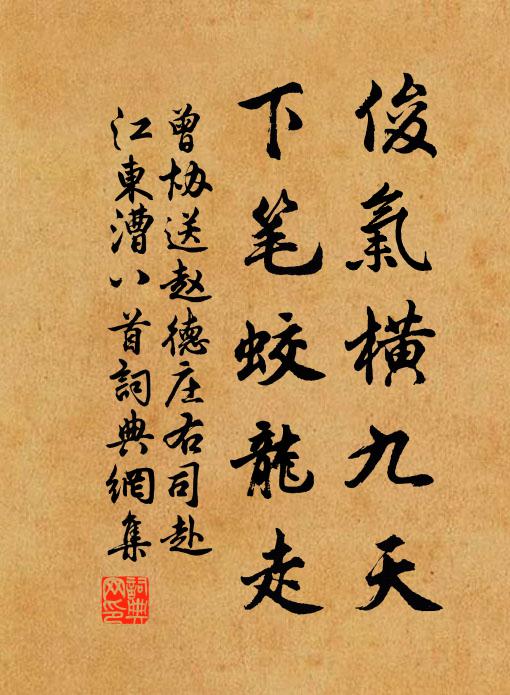 俊氣橫九天
下笔蛟龍走
曾协送赵德庄右司赴
江東漕八首詞典網集
詞典网印